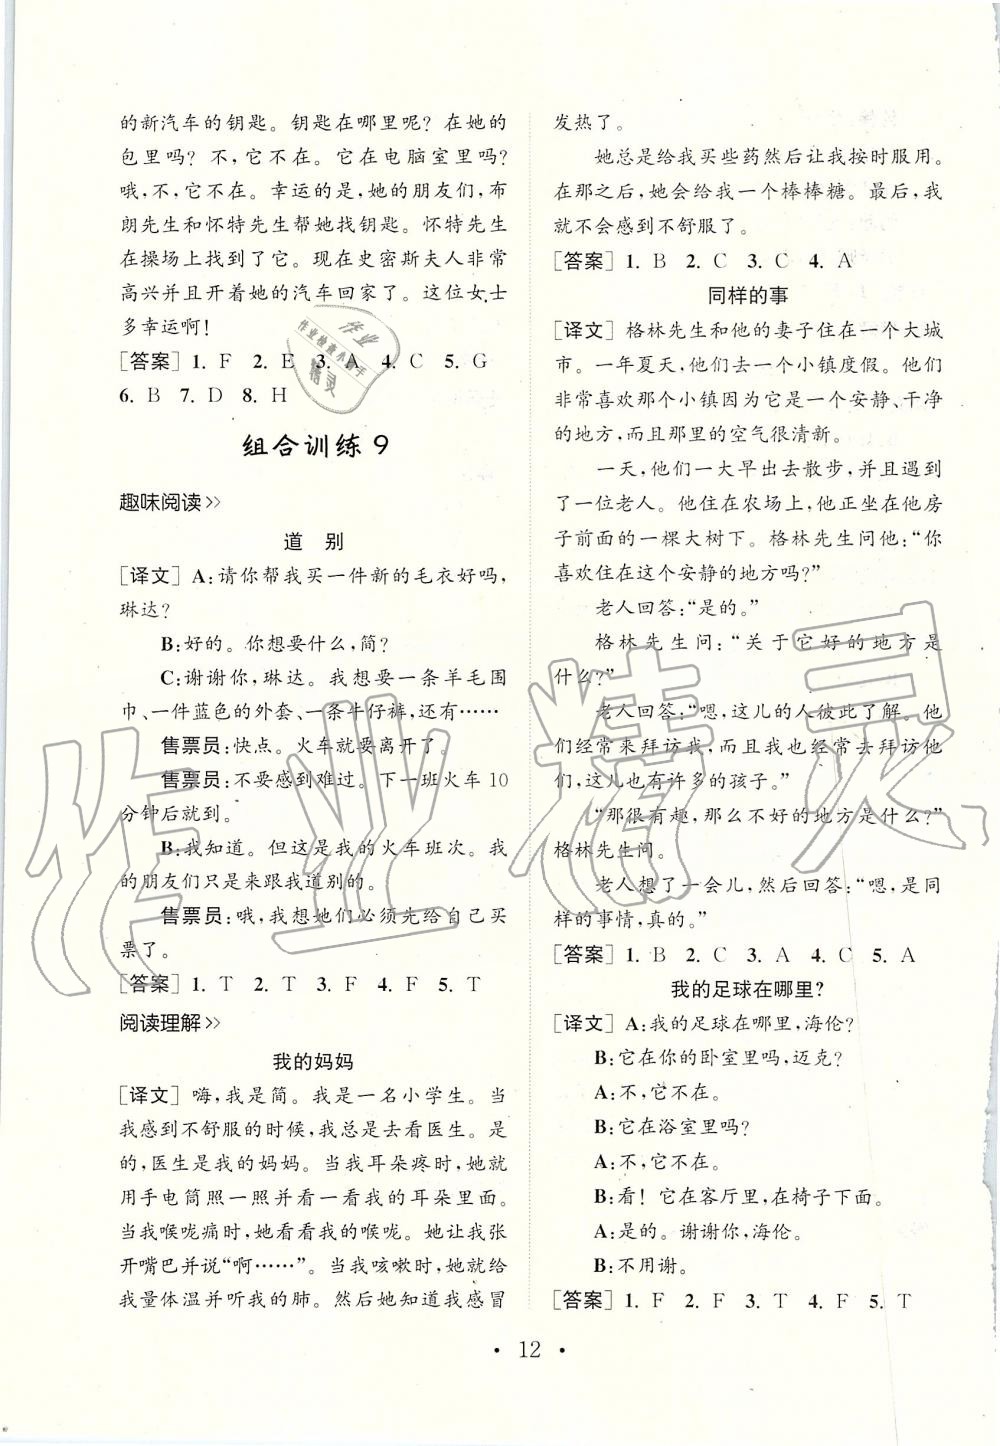 的新汽车的钥匙。钥匙在哪里呢？在她的
包里吗？不，它不在。它在电脑室里吗？
哦，不，它不在。幸运的是，她的朋友们，布
朗先生和怀特先生帮她找钥匙。怀特先生
在操场上找到了它。现在史密斯夫人非常
高兴并且开着她的汽车回家了。这位女士
多幸运啊！
[答案] 1. F 2. E 3. A 4. C 5. G
6. B 7. D 8. H
组合训练 9
趣味阅读>>
道 别
[译文] A:请你帮我买一件新的毛衣好吗，
琳达？
B:好的。你想要什么，简？
C:谢谢你，琳达。我想要一条羊毛围
巾、一件蓝色的外套、一条牛仔裤，还有……
售票员:快点。火车就要离开了。
售票员:不要感到难过。下一班火车 10
分钟后就到。
B:我知道。但这是我的火车班次。我
的朋友们只是来跟我道别的。
售票员:哦，我想她们必须先给自己买
票了。
[答案] 1. T 2. T 3. F 4. F 5. T
阅读理解>>
我的妈妈
[译文] 嗨，我是简。我是一名小学生。当
我感到不舒服的时候，我总是去看医生。是
的，医生是我的妈妈。当我耳朵疼时，她就
用手电筒照一照并看一看我的耳朵里面。
当我喉咙痛时，她看看我的喉咙。她让我张
开嘴巴并说“啊……”。当我咳嗽时，她就给
我量体温并听我的肺。然后她知道我感冒
发热了。
她总是给我买些药然后让我按时服用。
在那之后，她会给我一个棒棒糖。最后，我
就不会感到不舒服了。
[答案] 1. B 2. C 3. C 4. A
同样的事
[译文] 格林先生和他的妻子住在一个大城
市。一年夏天，他们去一个小镇度假。他们
非常喜欢那个小镇因为它是一个安静、干净
的地方，而且那里的空气很清新。
一天，他们一大早出去散步，并且遇到
了一位老人。他住在农场上，他正坐在他房
子前面的一棵大树下。格林先生问他：“你
喜欢住在这个安静的地方吗？”
老人回答：“是的。”
格林先生问：“关于它好的地方是
什么？”
老人回答：“嗯，这儿的人彼此了解。他
们经常来拜访我，而且我也经常去拜访他
们，这儿也有许多的孩子。”
“那很有趣，那么不好的地方是什么？”
格林先生问。
老人想了一会儿，然后回答：“嗯，是同
样的事情，真的。”
[答案] 1. B 2. C 3. A 4. C 5. A
我的足球在哪里？
[译文] A:我的足球在哪里，海伦？
B:它在你的卧室里吗，迈克？
A:不，它不在。
B:它在浴室里吗？
A:不，它不在。
B:看！它在客厅里，在椅子下面。
A:是的。谢谢你，海伦。
B:不用谢。
[答案] 1. F 2. F 3. T 4. F 5. T
• 12 •
作业精灵
作业
作业检查小助手
精灵